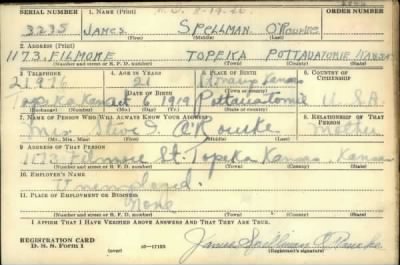 SERIAL NUMBER 1. NAME (Print) ORDER NUMBER
3235 JAMES SPELLMAN O'ROURKE
(First) (Middle) (Last)
2. ADDRESS (Print)
1173 FILMORE TOPEKA POTTAWATOMIE KANSAS
(Number and street or R. F. D. number) (Town) (County) (State)
3. TELEPHONE 4. AGE IN YEARS 5. PLACE OF BIRTH 6. COUNTRY OF CITIZENSHIP
21 Kansas
DATE OF BIRTH
Topeka Kansas Oct 6 1919 Pottawatomie U.S.A.
(Exchange) (Number) (Mo.) (Day) (Yr.) (State or country)
7. NAME OF PERSON WHO WILL ALWAYS KNOW YOUR ADDRESS 8. RELATIONSHIP OF THAT PERSON
Mrs. O'Rourke Mother
(Mr., Mrs., Miss) (First) (Middle) (Last)
9. ADDRESS OF THAT PERSON
1173 Filmore St. Topeka Kansas, Kansas
(Number and street or R. F. D. number) (Town) (County) (State)
10. EMPLOYER'S NAME
Unemployed.
11. PLACE OF EMPLOYMENT OR BUSINESS
None
(Number and street or R. F. D. number) (Town) (County) (State)
I AFFIRM THAT I HAVE VERIFIED ABOVE ANSWERS AND THAT THEY ARE TRUE.
REGISTRATION CARD
D. S. S. FORM 1 (over) 16—17105 James Spellman O'Rourke
(Registrant's signature)